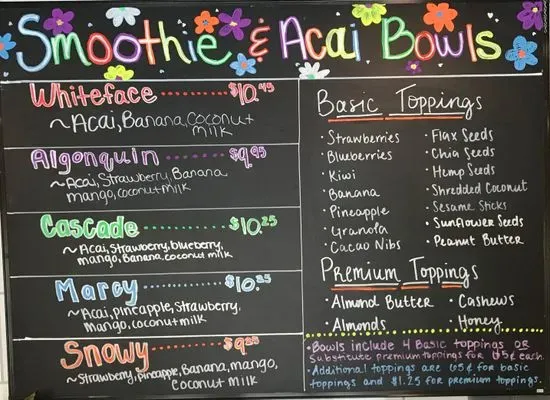 Smoothie & Acai Bowls
Whiteface $10.45
~Acai, Banana, coconut
milk
Algonquin $9.95
~Acai, Strawberry, Banana
mango, coconut milk
Cascade $10.25
~Acai, Strawberry, blueberry,
mango, Banana, coconut milk
Marcy $10.25
Acai, pineapple, Strawberry,
Mango, coconut milk
Snowy
~Strawberry, pineapple, Banana, mango,
coconut milk
Basic Toppings
• Strawberries
• Blueberries
• Kiwi
• Banana
• Pineapple
• Granola
• Cacao Nibs
• Flax Seeds
• Chia Seeds
• Hemp Seeds
• Shredded Coconut
• Sesame Sticks
• Sunflower Seeds
• Peanut Butter
Premium Toppings
• Almond Butter
• Almonds
• Cashews
• Honey
• Bowls include 4 Basic toppings or
Substitute premium toppings for 65¢ each.
• Additional toppings are 65¢ for basic
toppings and $1.25 for premium toppings.